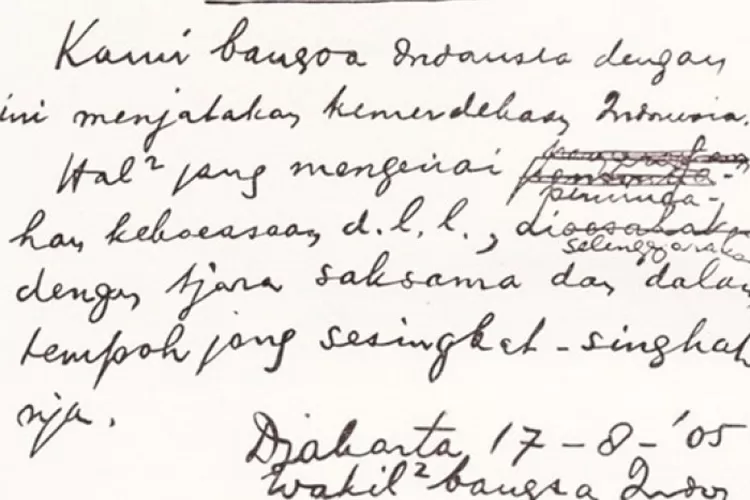 Kami bangsa Indonesia dengan
ini menjatakan kemerdekaan Indonesia.
Hal² jang mengenai
peminda-
han kekoeasaan d.l.l.,
diselenggarakan
dengan tjara saksama dan dalam
tempoh jang sesingkat-singkat
nja.
Djakarta 17-8-'05
Wakil² bangsa Indon